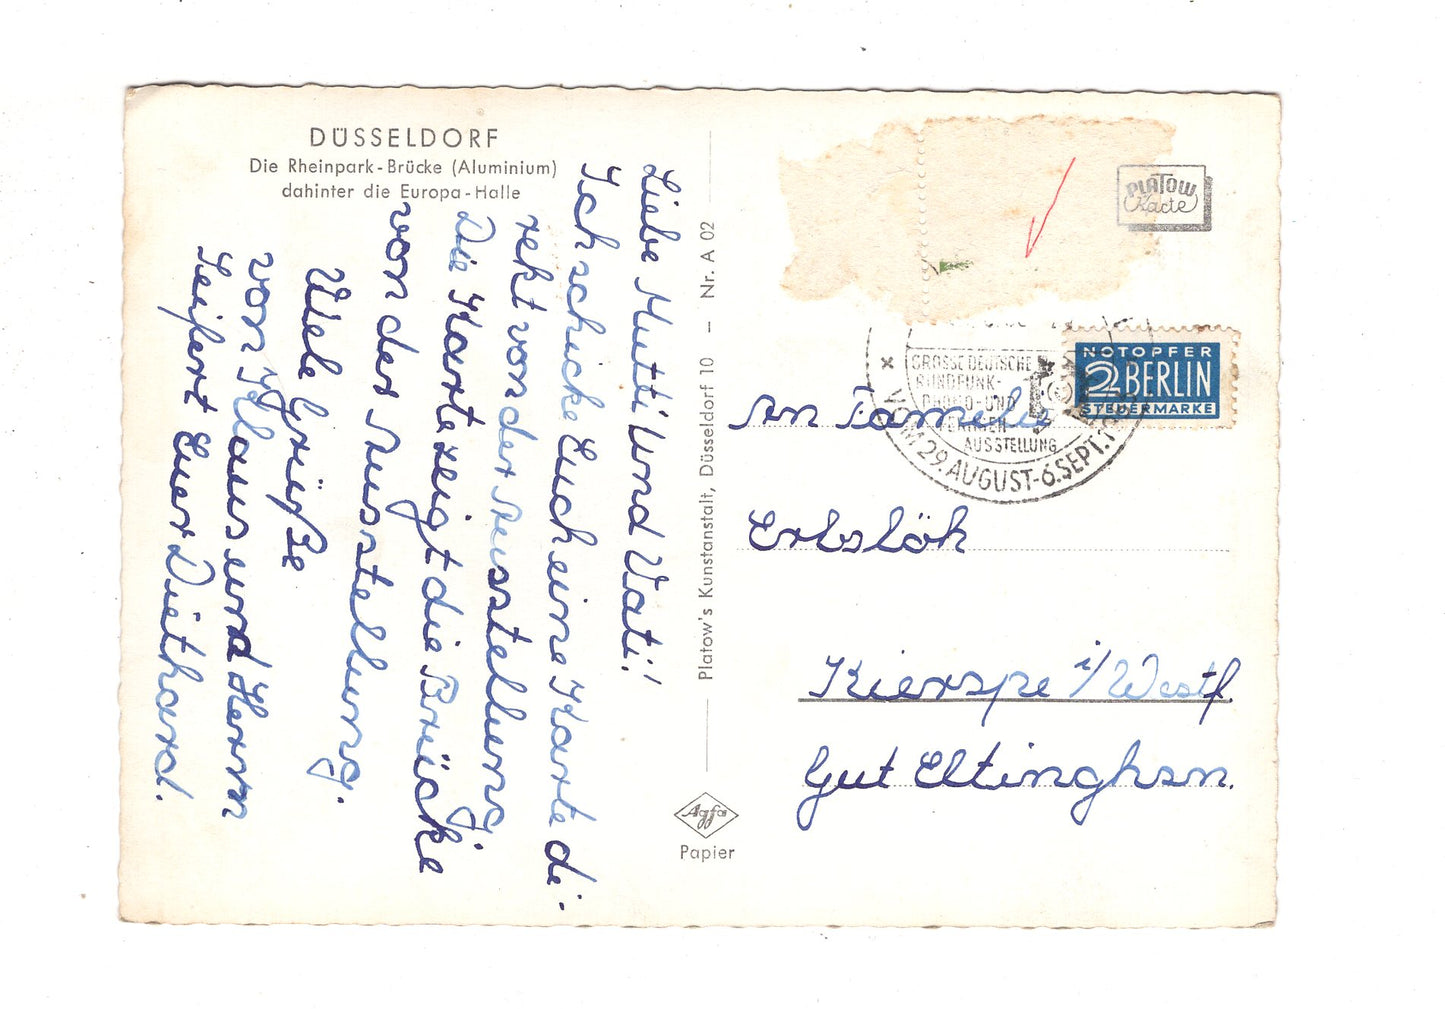 DÜSSELDORF
Die Rheinpark-Brücke (Aluminium)
dahinter die Europa-Halle
Liebe Mutti und Vati!
Ich schicke Euch eine Karte di-
rekt von der Ausstellung.
Die Karte zeigt die Brücke
von der Ausstellung.
Viele Grüße
von Klaus und Herrn
Seifert Euer Diethard.
Platow's Kunstanstalt, Düsseldorf 10 – Nr. A 02
Agfa
Papier
PLATOW
Karte
NOTOPFER
2 BERLIN
STEUERMARKE
GROSSE DEUTSCHE
RUNDFUNK-
PHONO-UND
AUSSTELLUNG
VOM 29. AUGUST-6. SEPT.
An Familie
Erbslöh
Kierspe i/Westf.
Gut Eltinghsn.